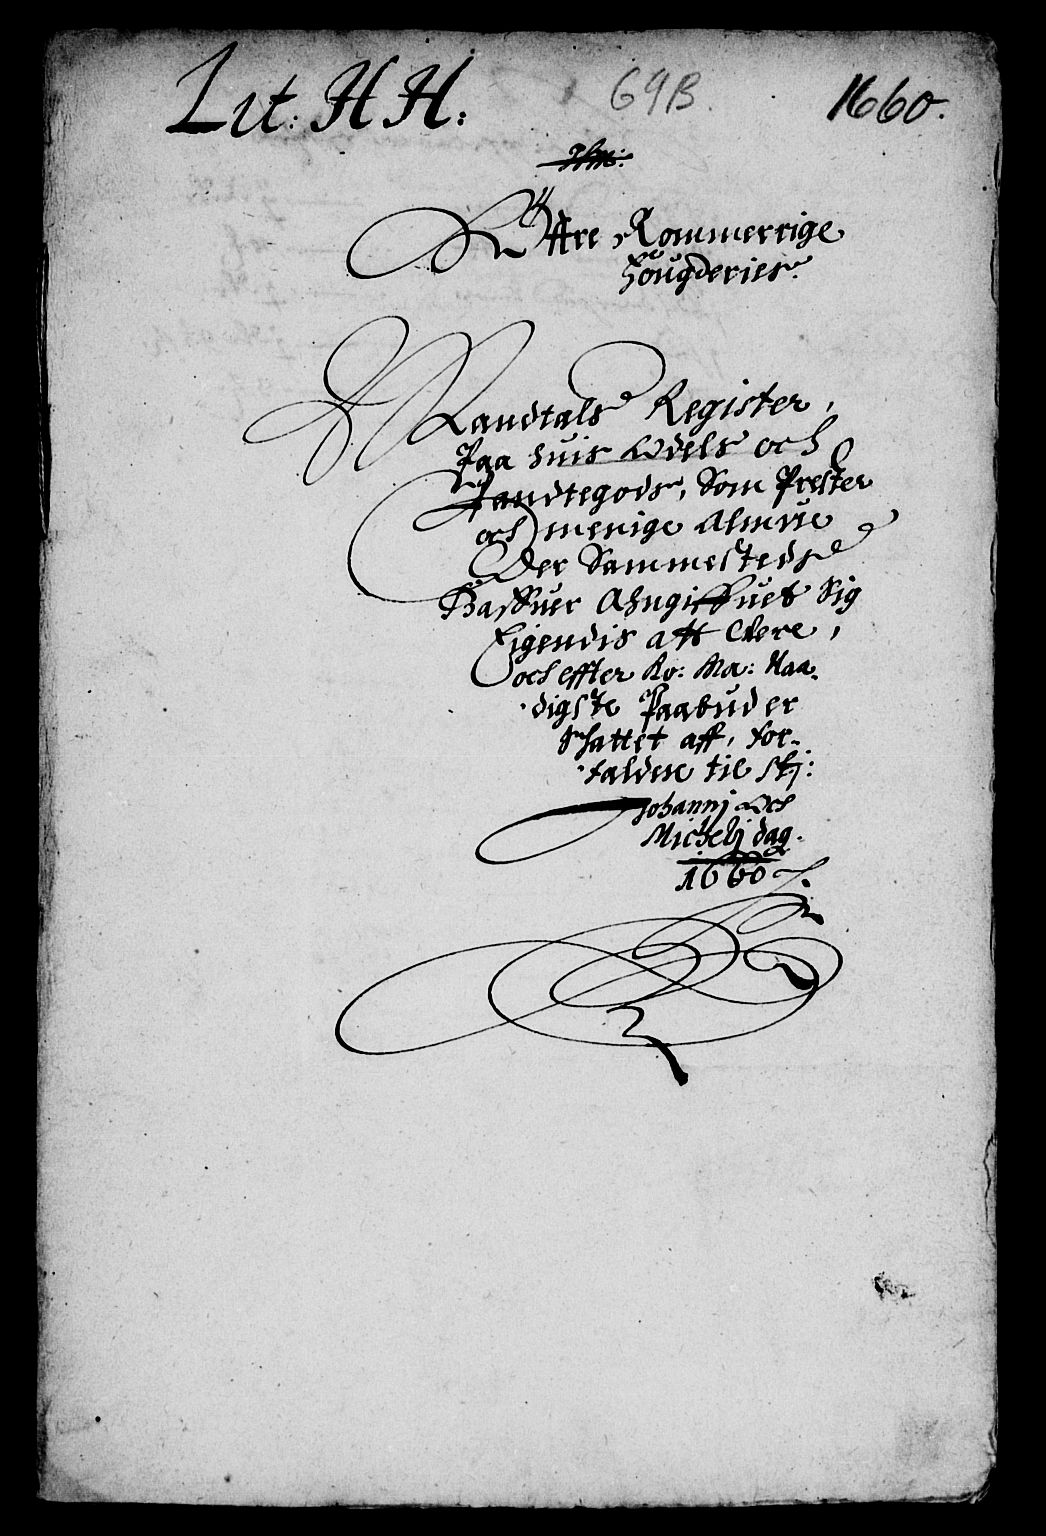 Lit: H H:
69B.
1660.
Øffre Rommerrige
Fougderies.
Mandtals Register,
Paa huis Odels och
Jandtegods, Som Prester
och menige Almue
Der Sammesteds
Haffuer Ahngiffuet Sig
Eigendis att Were,
och effter Ko: Ma: Naa-
digste Paabud er
Schattet aff, for-
falden til St:
Johannj Och
Michelj dag.
1660